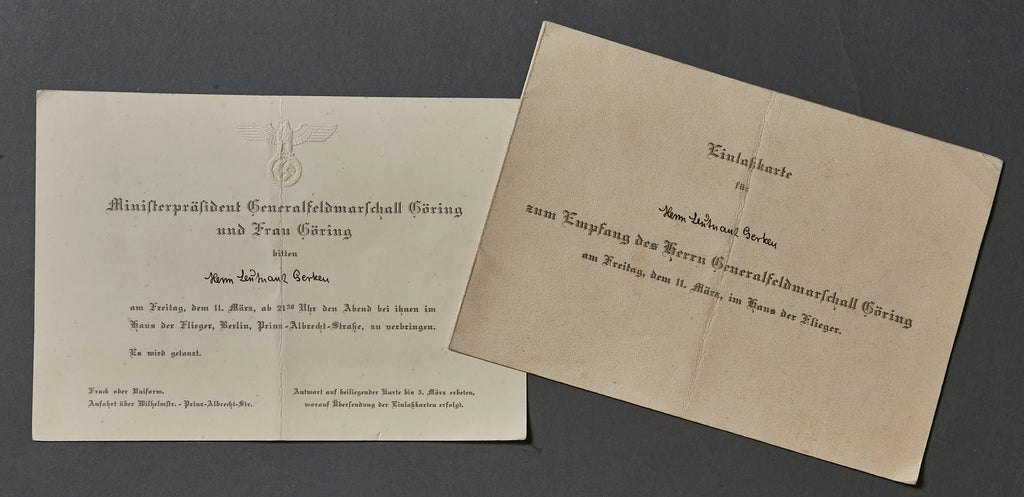 Ministerpräsident Generalfeldmarschall Göring
und Frau Göring
bitten
Herrn Leutnant Gerken
am Freitag, dem 11. März, ab 21³⁰ Uhr den Abend bei ihnen im
Haus der Flieger, Berlin, Prinz-Albrecht-Straße, zu verbringen.
Es wird getanzt.
Frack oder Uniform.
Anfahrt über Wilhelmstr. - Prinz-Albrecht-Str.
Antwort auf beiliegender Karte bis 5. März erbeten,
worauf Übersendung der Einlaßkarten erfolgt.
Einlaßkarte
für
Herrn Leutnant Gerken
zum Empfang des Herrn Generalfeldmarschall Göring
am Freitag, dem 11. März, im Haus der Flieger.